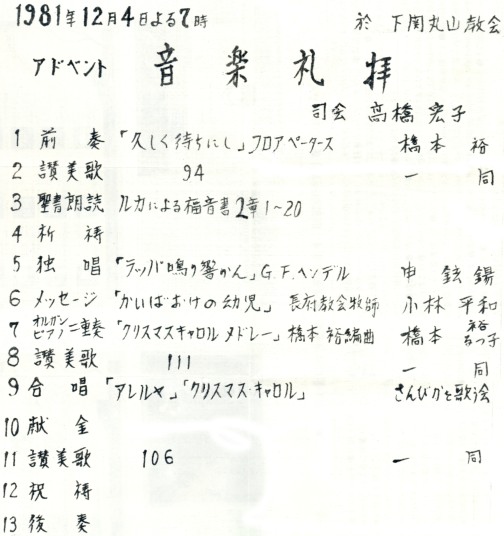 1981年12月4日よる7時 於 下関丸山教会
アドベント 音楽礼拝
司会 高橋宏子
1 前奏 「久しく待ちにし」フロアペータース 橋本 裕
2 讃美歌 94 一同
3 聖書朗読 ルカによる福音書2章1~20
4 祈祷
5 独唱 「ラッパ鳴り響かん」G.F.ヘンデル 申 鉉錫
6 メッセージ 「かいばおけの幼児」 長府教会牧師 小林 平和
7 オルガンピアノ二重奏 「クリスマスキャロルメドレー」橋本 裕編曲 橋本 裕 るつ子
8 讃美歌 111 一同
9 合唱 「アレルヤ」「クリスマス・キャロル」 さんびかを歌う会
10 献金
11 讃美歌 106 一同
12 祝祷
13 後奏